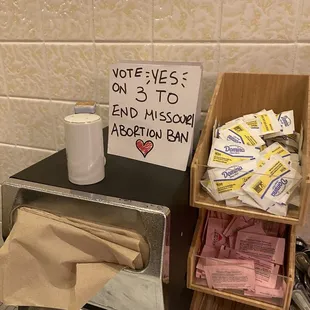 VOTE YES
ON 3 TO
END MISSOURI
ABORTION BAN
Domino
Domino
Domino